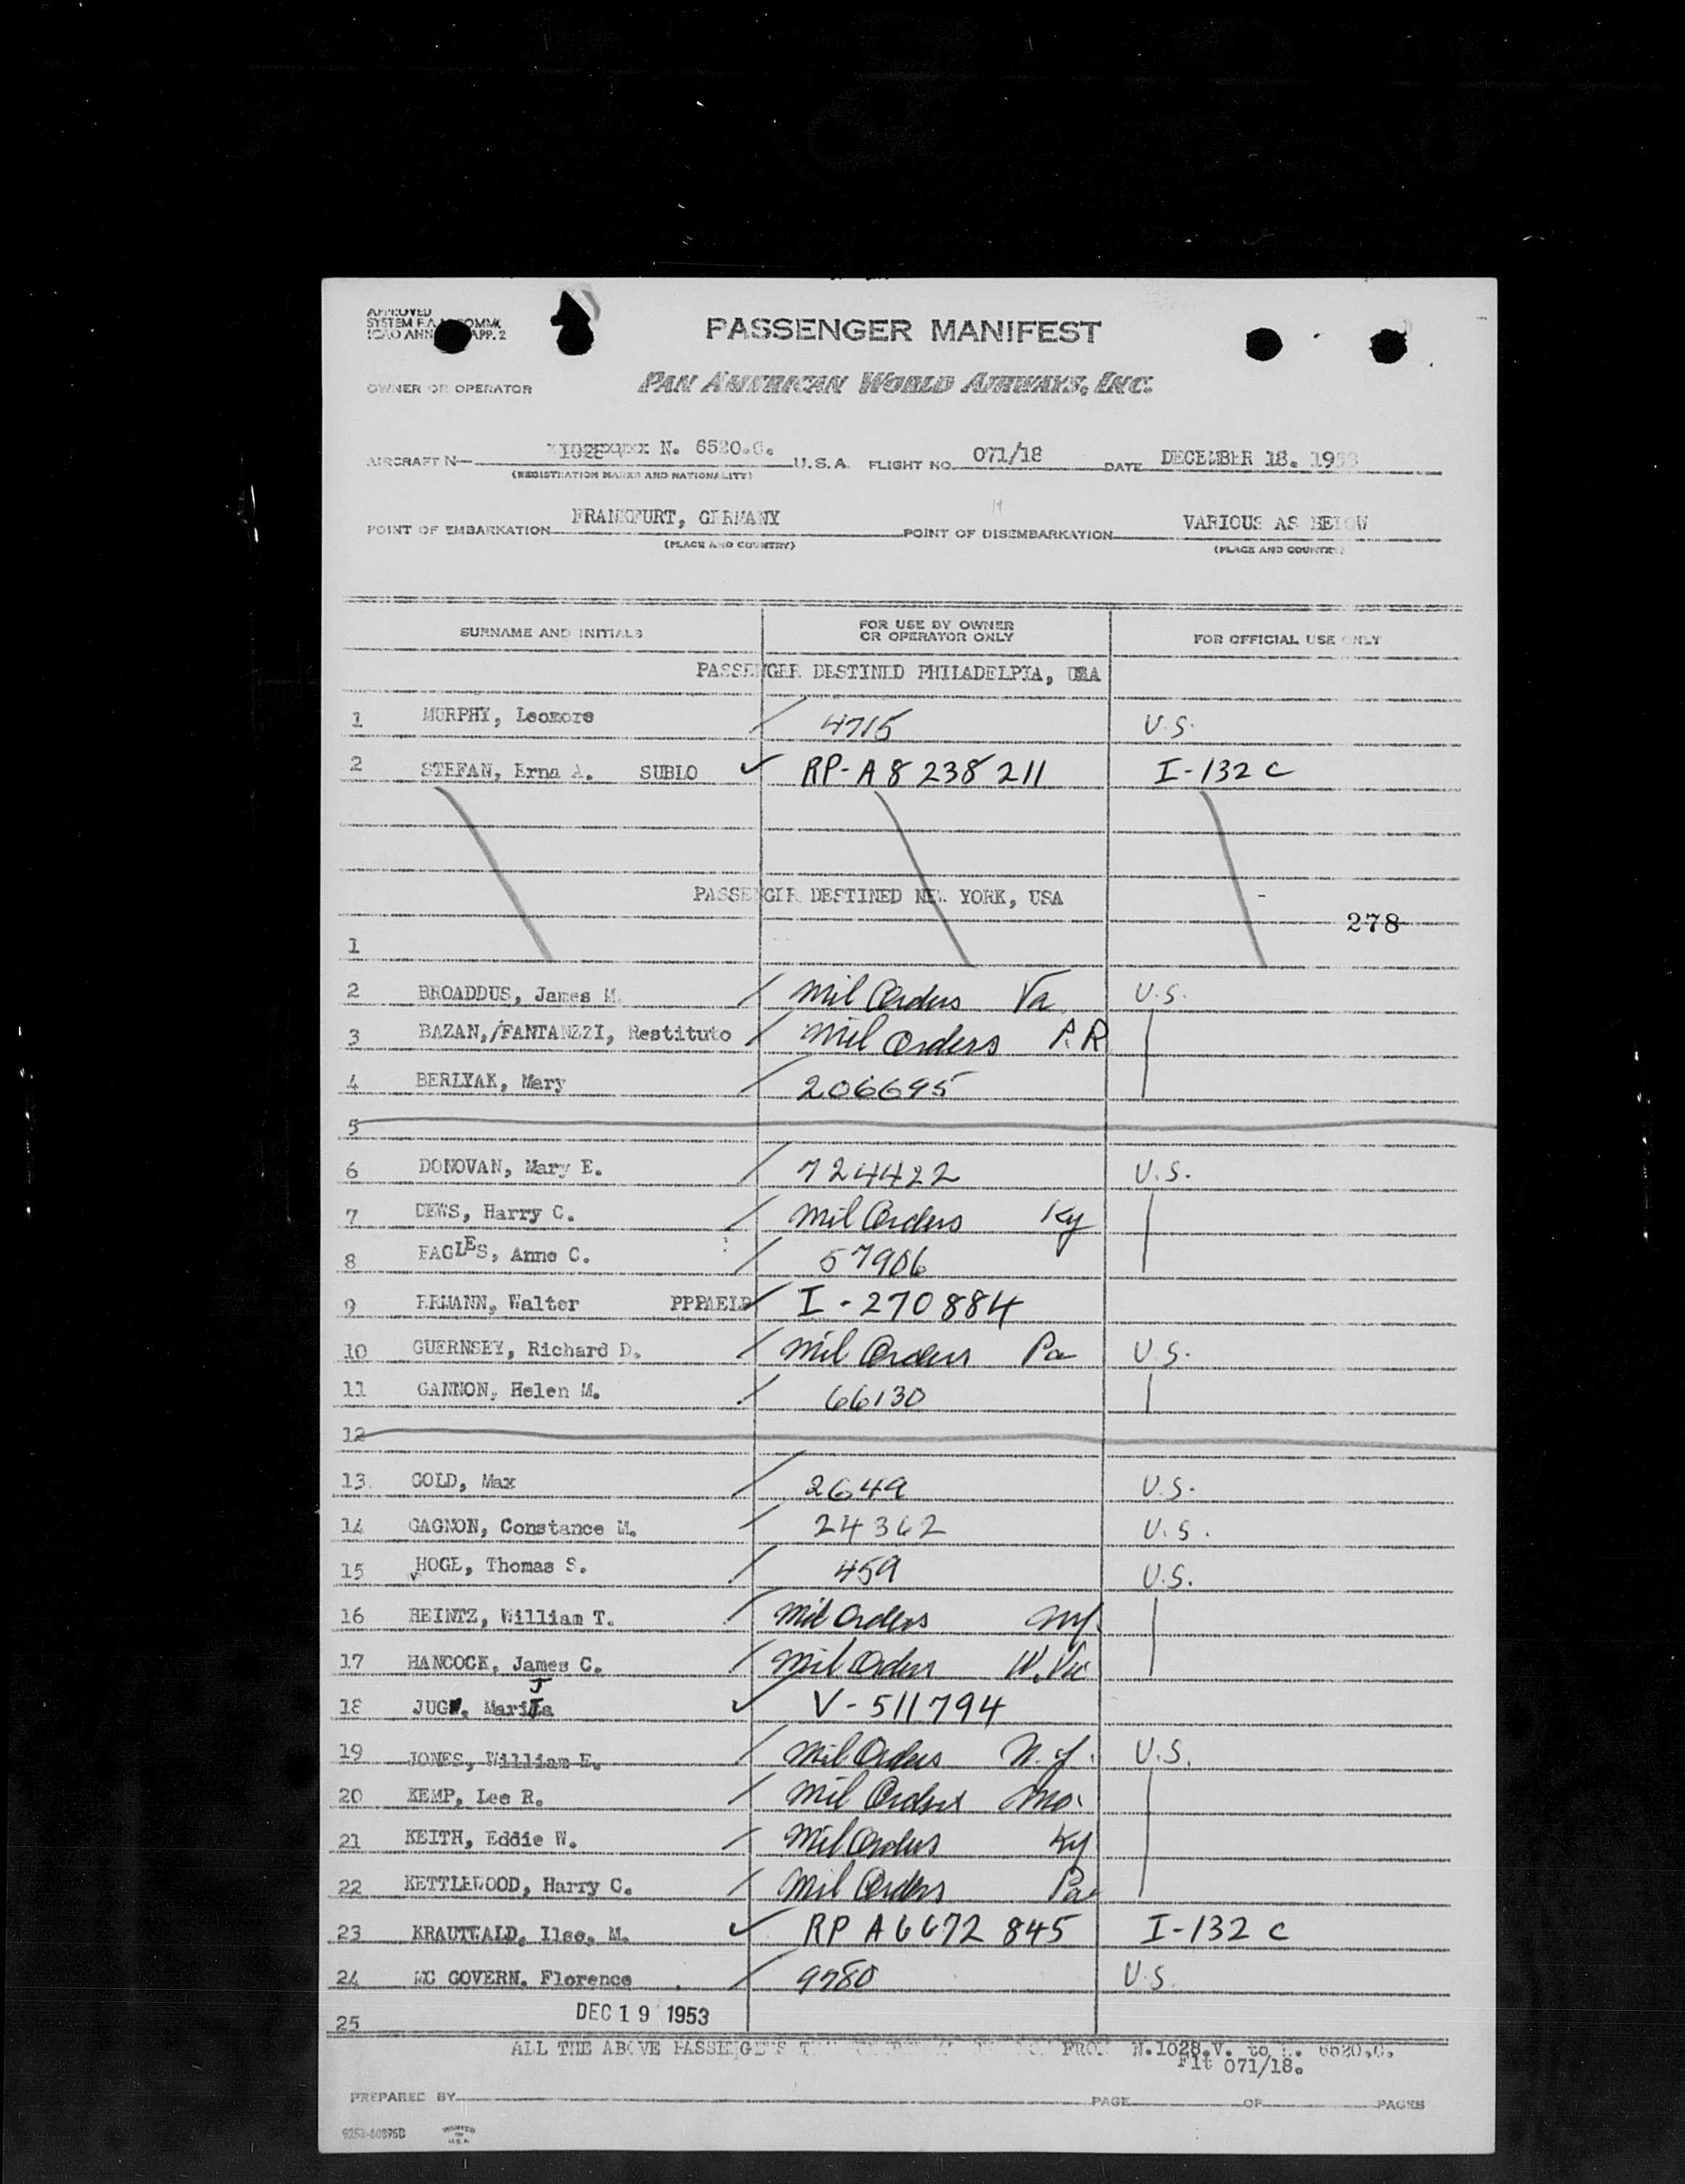 APPROVED
SYSTEM F.A.L. COMM.
ICAO ANN APP. 2
PASSENGER MANIFEST
OWNER OR OPERATOR PAN AMERICAN WORLD AIRWAYS, INC.
AIRCRAFT N— N. 6520.C. U.S.A. FLIGHT NO. 071/18 DATE DECEMBER 18. 1953
(REGISTRATION MARKS AND NATIONALITY)
POINT OF EMBARKATION FRANKFURT, GERMANY POINT OF DISEMBARKATION VARIOUS AS BELOW
(PLACE AND COUNTRY) (PLACE AND COUNTRY)
SURNAME AND INITIALS FOR USE BY OWNER OR OPERATOR ONLY FOR OFFICIAL USE ONLY
PASSENGER DESTINED PHILADELPIA, USA
1 MURPHY, Leonore / 4715 U.S.
2 STEFAN, Erna A. SUBLO ✓ RP-A8 238 211 I-132 C
PASSENGER DESTINED NEW YORK, USA
278
1
2 BROADDUS, James M. / Mil Orders Va U.S.
3 BAZAN,/FANTANZZI, Restituto / Mil Orders P.R
4 BERLYAK, Mary / 206695
5
6 DONOVAN, Mary E. / 724422 U.S.
7 DEWS, Harry C. / Mil Orders Ky
8 EAGLES, Anne C. / 57906
9 ERMANN, Walter PPPAEIP ✓ I-270884
10 GUERNSEY, Richard D. / Mil Orders Pa U.S.
11 GANNON, Helen M. / 66130
12
13 GOLD, Max / 2649 U.S.
14 GAGNON, Constance M. / 24362 U.S.
15 HOGE, Thomas S. / 459 U.S.
16 HEINTZ, William T. / Mil Orders
17 HANCOCK, James C. / Mil Orders W.Va
18 JUG, Marija ✓ V-511794
19 JONES, William E. / Mil Orders U.S.
20 KEMP, Lee R. / Mil Orders Mo.
21 KEITH, Eddie W. / Mil Orders Ky
22 KETTLEWOOD, Harry C. / Mil Orders Pa
23 KRAUTWALD, Ilse, M. ✓ RP A6672 845 I-132 C
24 MC GOVERN. Florence / 9780 U.S.
25 DEC 19 1953
ALL THE ABOVE PASSENGERS FROM N.1028.V. to N. 6520.C.
Flt 071/18.
PREPARED BY PAGE OF PAGES
PRINTED IN U.S.A.